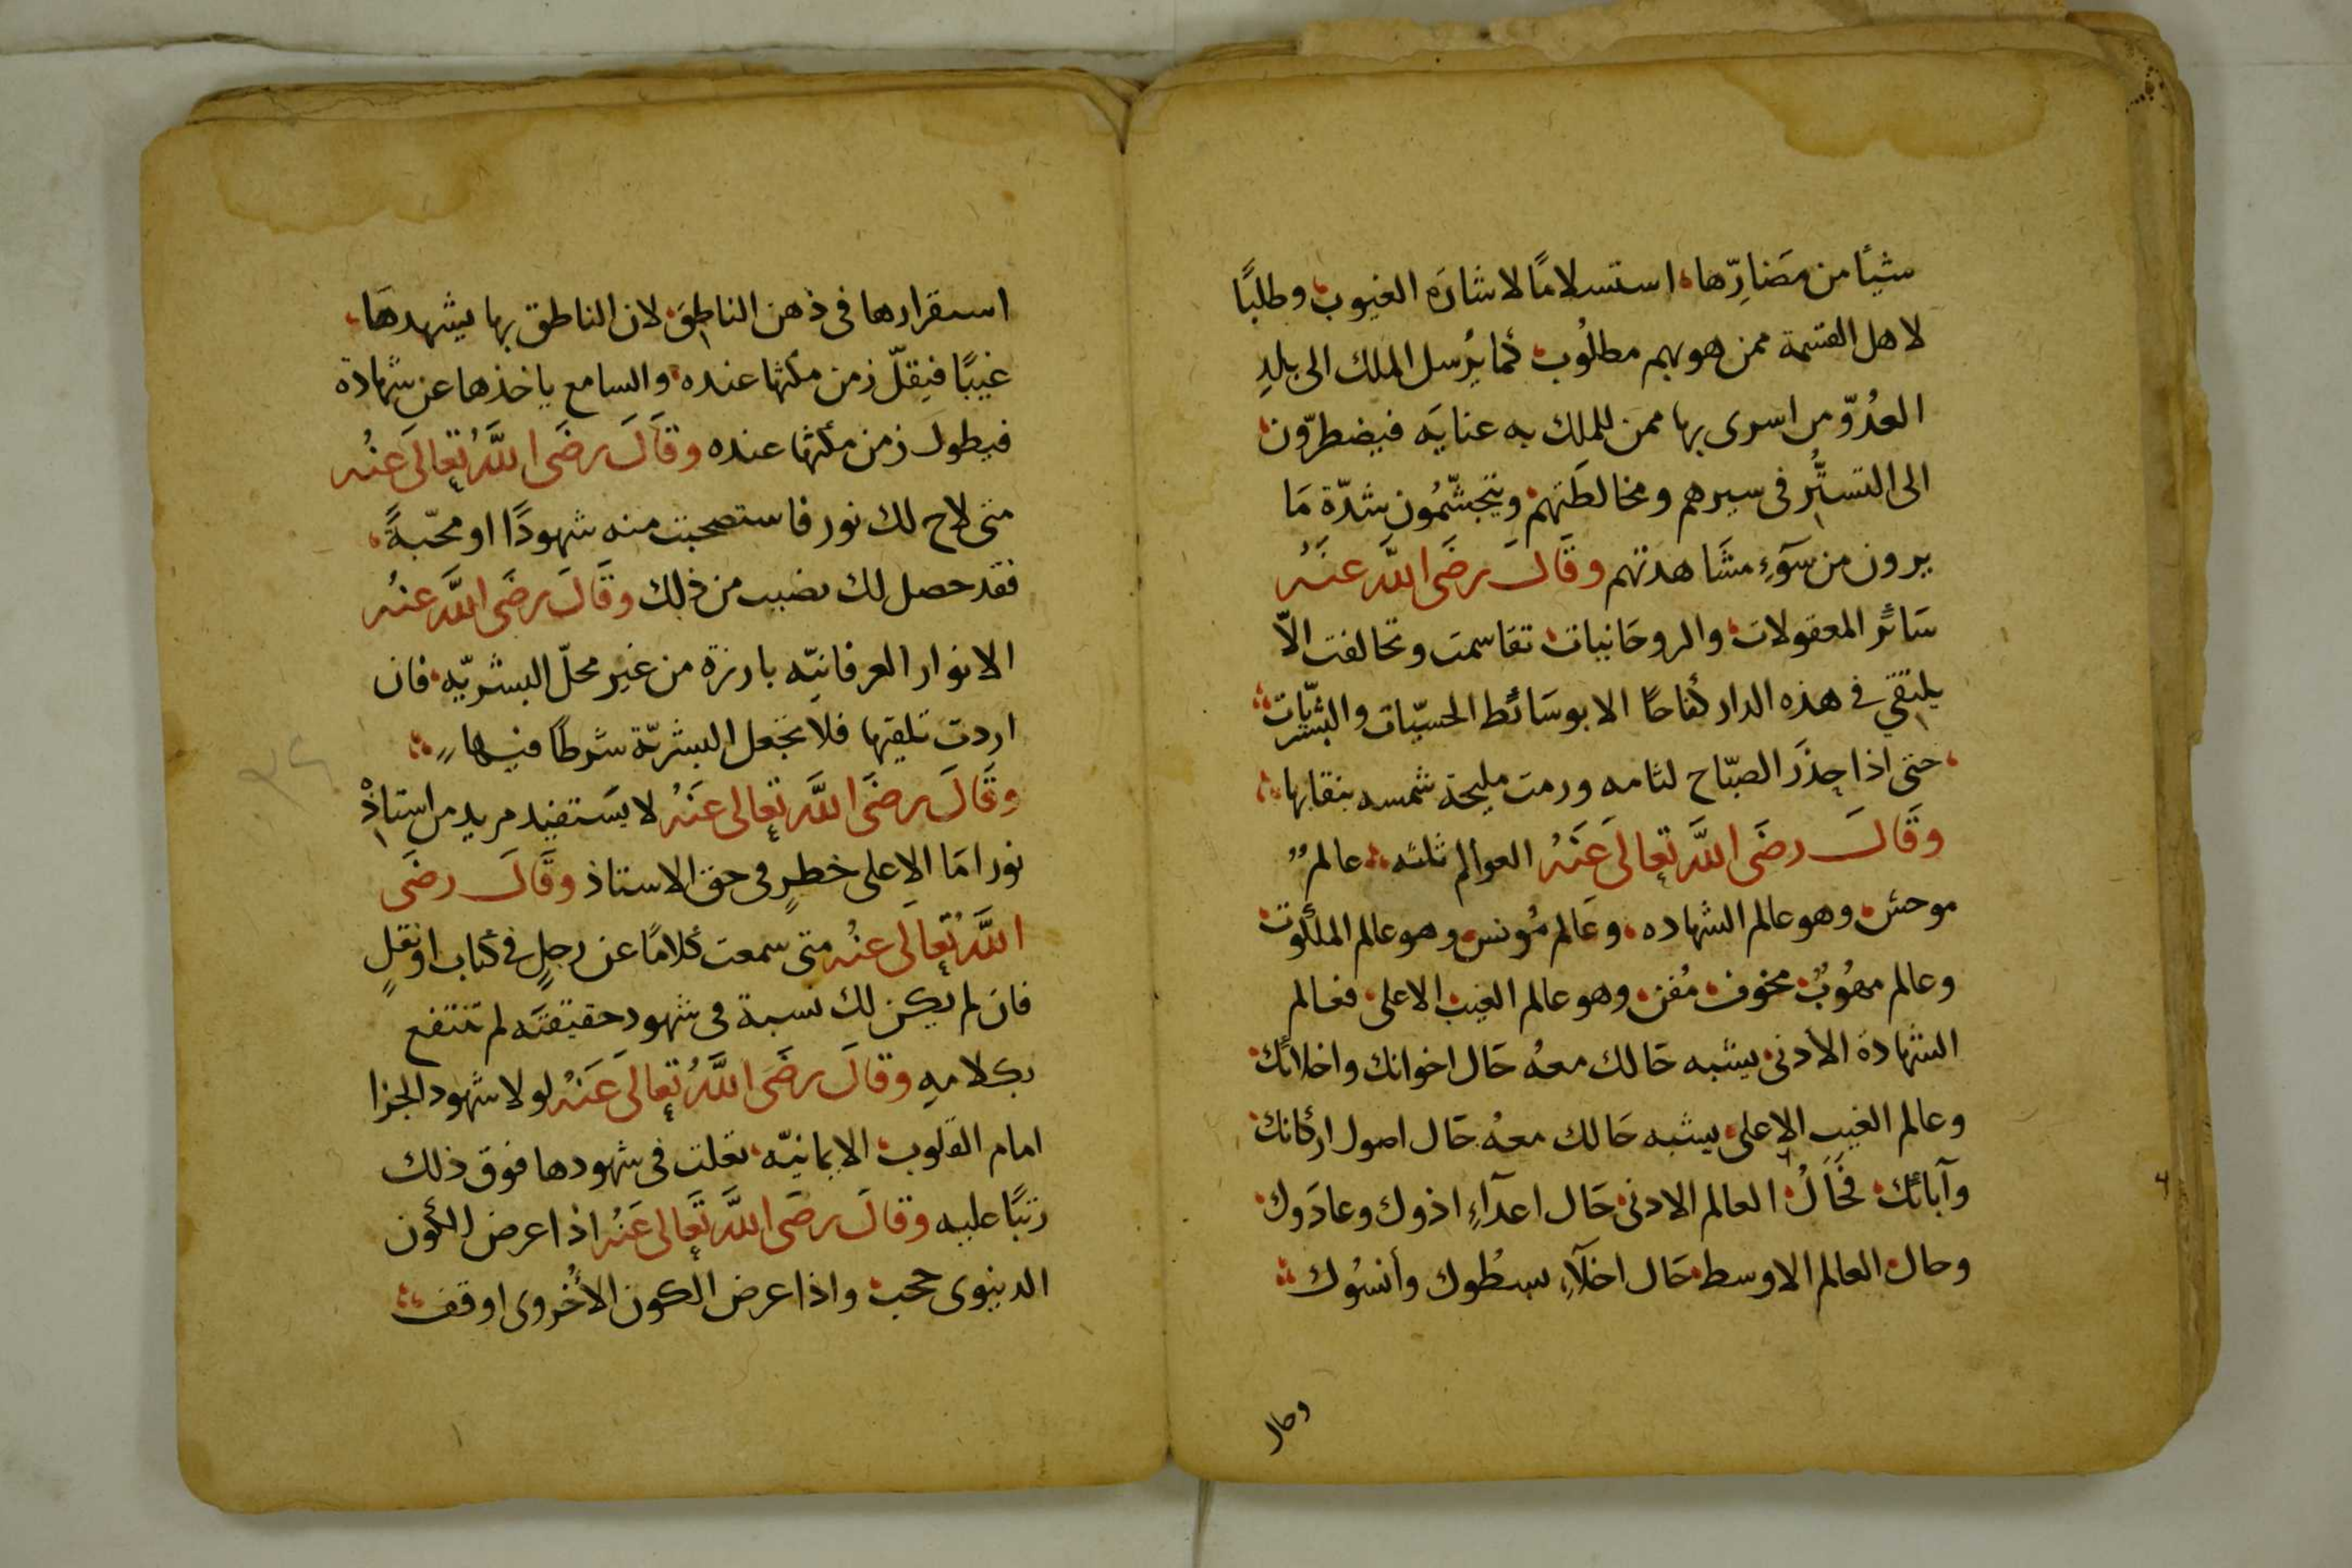 شيئا من مضارّها، استسلامًا لاشارة الغيوب وطلبًا
لاهل القسمة ممن هو بهم مطلُوب كما يُرسل الملك الى بلدِ
العدُوّ من اسرى بها ممن للملك به عناية فيضطرّون
الى التستُّر فى سيرهم ومخالطَتهم ويتجشّمُون شدّة مَا
يرون من سَوءِ مشَاهدتهم وقَالَ رضَى اللَّه عنَهُ
سَائر المعقولات والروحَانيات تقَاسمت وتحالفت الّا
يلتقي في هذه الدار كفاحًا الا بوسَائط الحسيّات والبشريّات
حتى اذا حذَرَ الصبّاح لثامه ورمت مليحة شمسه بنقابها
وقَالَ رضَى اللَّه تعالَى عَنَهُ العوالم ثلثه عالمٌ
موحش وهو عالم الشهاده، وعَالم مُونس وهو عالم الملكوت
وعالم مهُوبٌ مخوف مُفن وهو عالم الغيب الاعلى فعالم
الشهادة الادنى يشبه حَالك معهُ حَال اخوانك واخلائك
وعالم الغيب الاعلى يشبه حَالك معهُ حَال اصول اركانك
وآبائك فحَالُ العالم الادنى حَال اعدَآءٍ اذوك وعادَوك
وحال العالم الاوسط حَال اخلّآءِ بسطُوك وأنسُوك
وحال
استقرارها فى ذهن الناطق لان الناطق بها يشهدهَا
غيبًا فيقلّ زمن مكثها عنده والسامع ياخذها عن شهادة
فيطول زمن مكثها عنده وقَالَ رضَى اللَّهُ تعالَى عنُه
متى لاح لك نور فاستصحبت منه شهودًا او محبّةً
فقد حصل لك نصيب من ذلك وقَالَ رضَى اللَّه عنُه
الانوار العرفانيّه بارزة من غير محلّ البشريّه فان
اردت تلقيها فلا تجعل البشريّة شرطًا فيها
وقَالَ رضَى اللَّه تعالى عَنَهُ لا يسَتفيد مريد من استاذْ
نورا مَا الا على خطرٍ فى حق الاستاذ وقَالَ رضَى
اللَّهُ تعالَى عنُه متى سمعت كلامًا عن رجلٍ في كتاب او نقلٍ
فان لم يكن لك نسبة فى شهود حقيقتَه لم تنتفع
بكلامهِ وقالَ رضَى اللَّهُ تعالَى عَنَهُ لولا شهود الجزا
امام القلوب الايمانيّه تعلت فى شهودها فوق ذلك
رتبًا عليه وقالَ رضَى اللَّه تعَالى عَنُه اذا عرض الكون
الدينوى حجب واذا عرض الكون الأخُروى اوقف